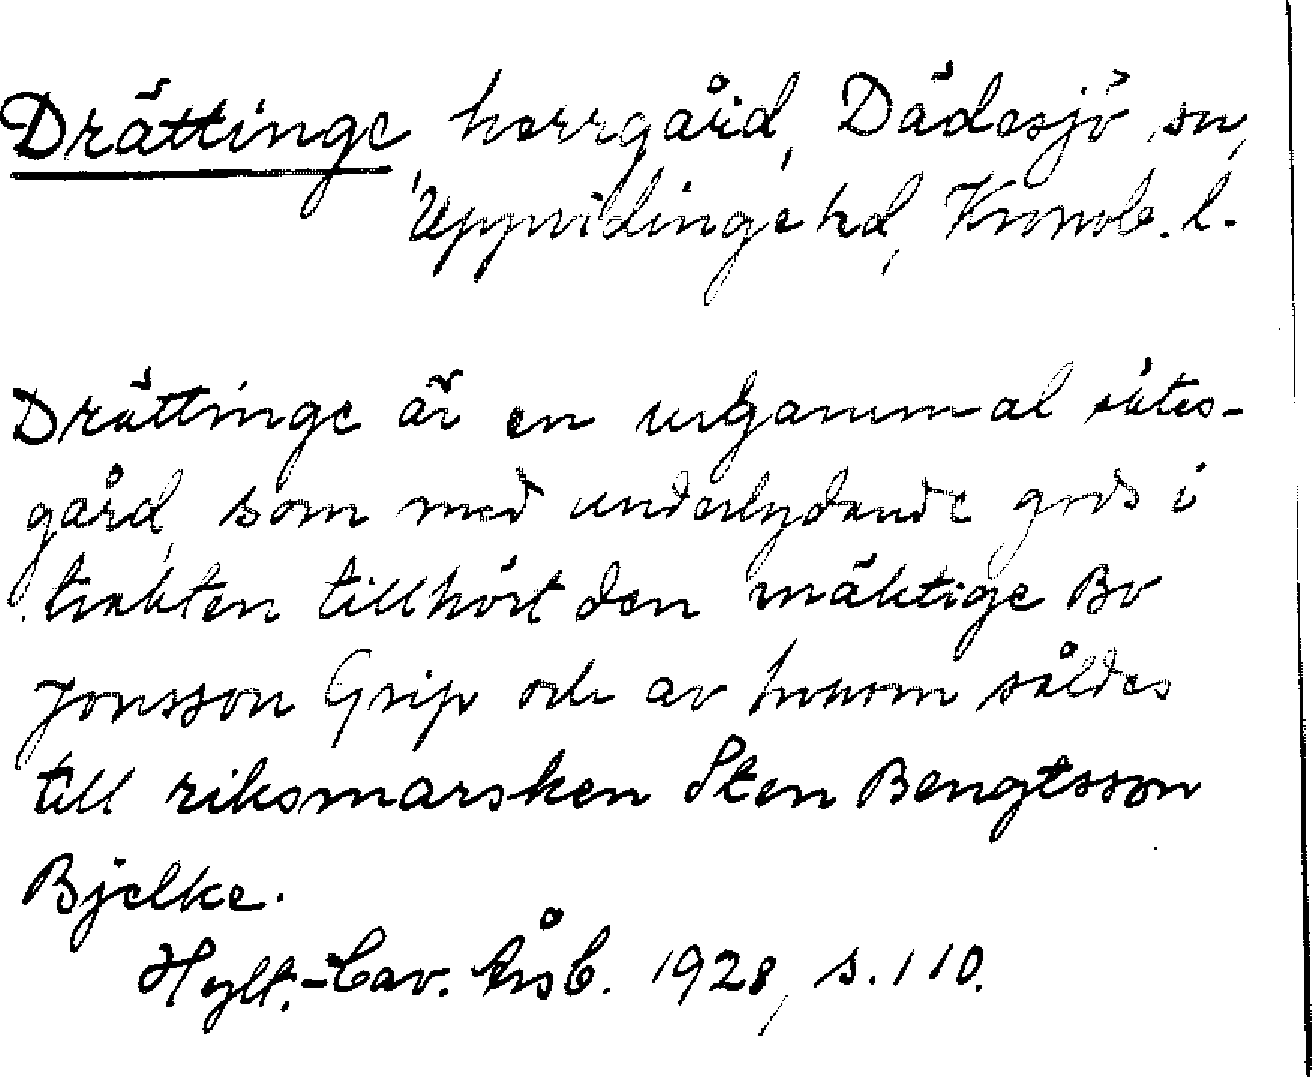 Drättinge herrgård, Dädesjö sn,
Uppvidinge hd, Kronob. l.
Drättinge är en urgammal sätes-
gård, som med underlydande gods i
trakten tillhört den mäktige Bo
Jonsson Grip och av honom såldes
till riksmarsken Sten Bengtsson
Bjelke.
Hylt.-Cav. Årsb. 1928, s. 110.